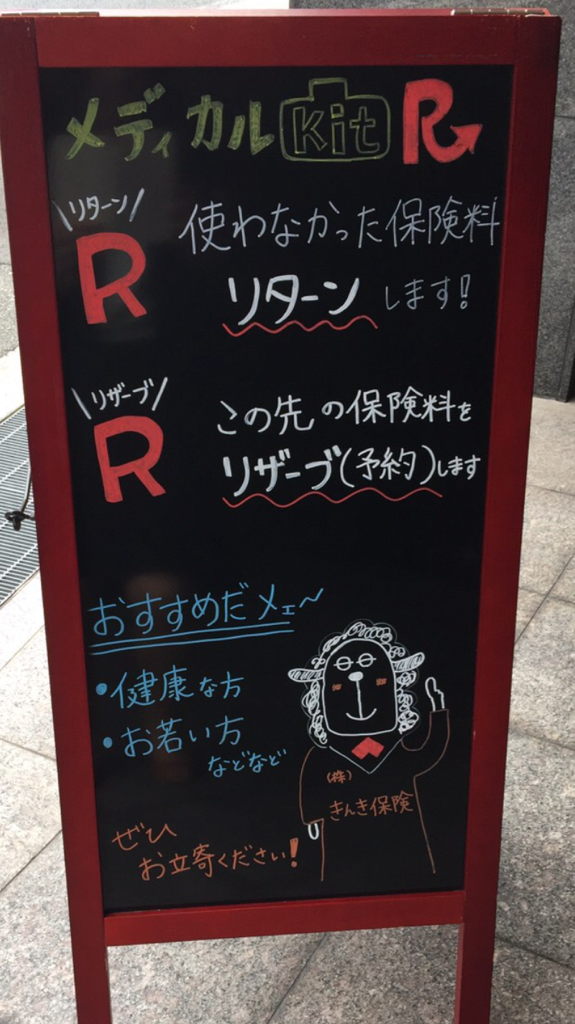 メディカルKit R
\リターン/
R
使わなかった保険料
リターンします!
\リザーブ/
R
この先の保険料を
リザーブ(予約)します
おすすめだメェ〜
・健康な方
・お若い方
などなど
(株)
きんき保険
ぜひ
お立寄ください!